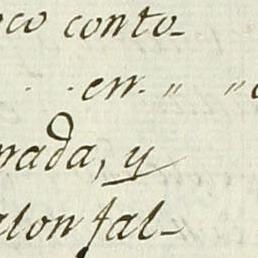 oco conto-
. . en. " "
nada, y
alon fal-